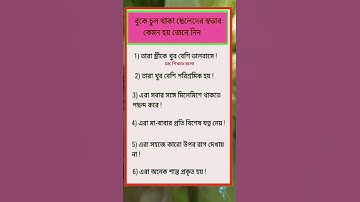 বুকে চুল থাকা ছেলেদের স্বভাব
কেমন হয় জেনে নিন
1) তারা স্ত্রীকে খুব বেশি ভালবাসে !
2) তারা খুব বেশি পরিশ্রমিক হয় !
3) এরা সবার সঙ্গে মিলেমিশে থাকতে
পছন্দ করে !
4) এরা মা-বাবার প্রতি বিশেষ যত্ন নেয় !
5) এরা সহজে কারো উপর রাগ দেখায়
না !
6) এরা অনেক শান্ত প্রকৃত হয় !